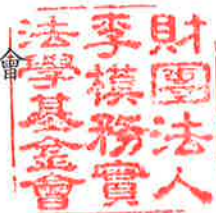 財團法人
李模務實
法學基金會
會